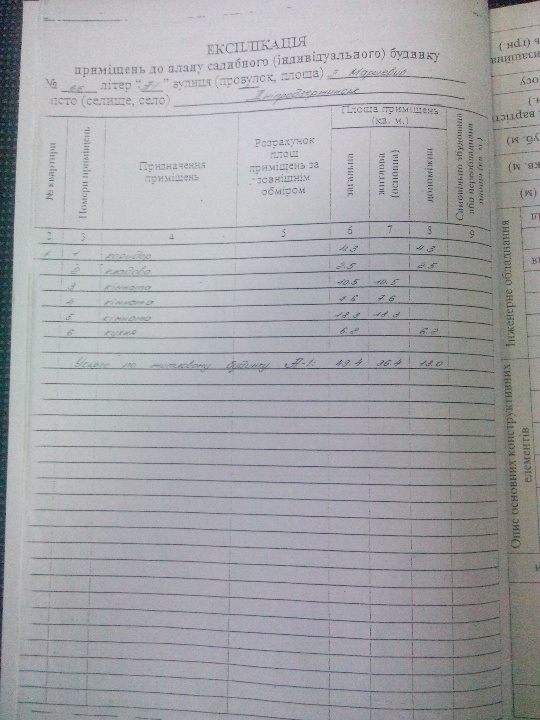 ЕКСПЛІКАЦІЯ
приміщень до плану садибного (індивідуального) будинку
№ 66 літер "А-1" вулиця (провулок, площа)
місто (селище, село) Дніпродзержинськ
№ квартири
Номери приміщень
Призначення приміщень
Розрахунок площ приміщень за зовнішнім обміром
Площа приміщень (кв. м.)
загальна
житлова (основна)
допоміжна
Самовільно збудована або переобладнана площа (кв. м.)
2 3 4 5 6 7 8 9
1 1 коридор 4.3 4.3
2 кладова 2.5 2.5
3 кімната 10.5 10.5
4 кімната 7.6 7.6
5 кімната 18.3 18.3
6 кухня 6.2 6.2
Усього по житловому будинку А-1: 49.4 36.4 13.0
Інженерне обладнання
Опис основних конструктивних елементів